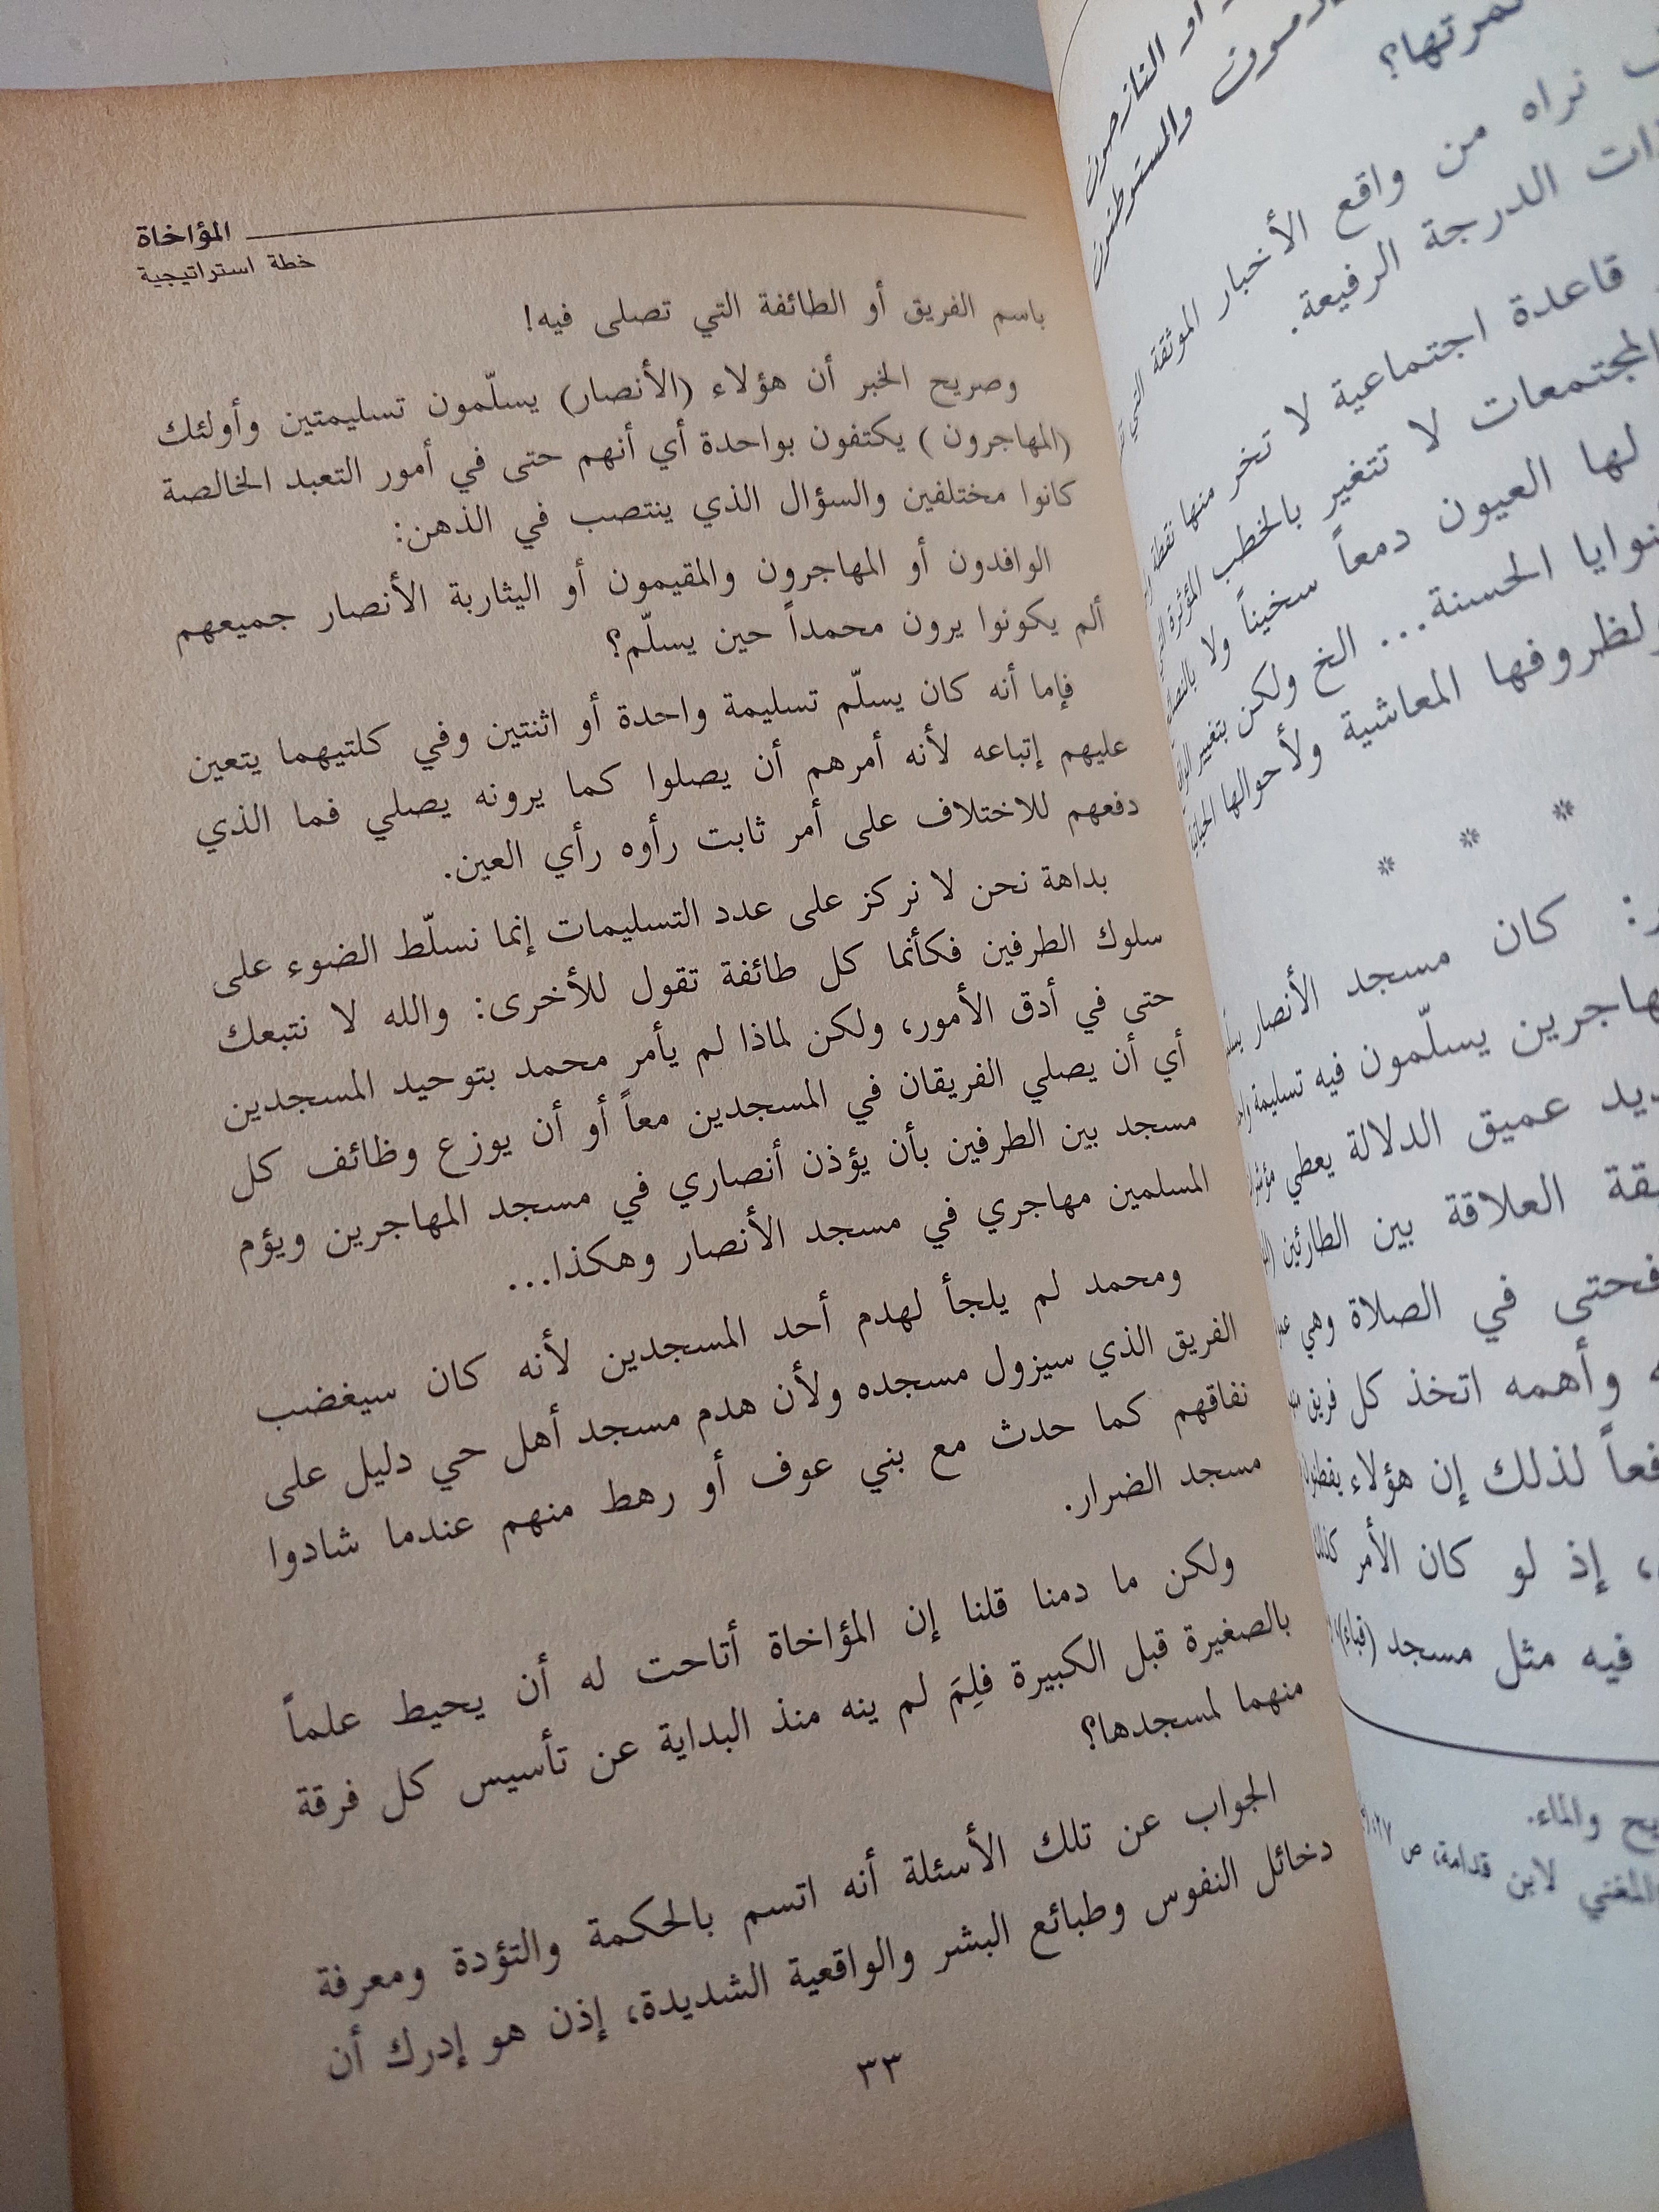 ثمرتها؟
نراه من واقع الأخبار الموثقة التي
ذات الدرجة الرفيعة.
قاعدة اجتماعية لا تخر منها نقطة
المجتمعات لا تتغير بالخطب المؤثرة
لها العيون دمعاً سخيناً ولا
الحسنة... الخ ولكن بتغيير
لظروفها المعاشية ولأحوالها
* * *
كان مسجد الأنصار
يسلّمون فيه تسليمة
عميق الدلالة يعطي
العلاقة بين الطارئين
فحتى في الصلاة وهي
وأهمه اتخذ كل فريق
لذلك إن هؤلاء
، إذ لو كان الأمر كذلك
فيه مثل مسجد (قباء)
والماء.
المغني لابن قدامة، ص
المؤاخاة
خطة استراتيجية
باسم الفريق أو الطائفة التي تصلى فيه!
وصريح الخبر أن هؤلاء (الأنصار) يسلّمون تسليمتين وأولئك
(المهاجرون) يكتفون بواحدة أي أنهم حتى في أمور التعبد الخالصة
كانوا مختلفين والسؤال الذي ينتصب في الذهن:
الوافدون أو المهاجرون والمقيمون أو اليثاربة الأنصار جميعهم
ألم يكونوا يرون محمداً حين يسلّم؟
فإما أنه كان يسلّم تسليمة واحدة أو اثنتين وفي كلتيهما يتعين
عليهم إتباعه لأنه أمرهم أن يصلوا كما يرونه يصلي فما الذي
دفعهم للاختلاف على أمر ثابت رأوه رأي العين.
بداهة نحن لا نركز على عدد التسليمات إنما نسلّط الضوء على
سلوك الطرفين فكأنما كل طائفة تقول للأخرى: والله لا نتبعك
حتى في أدق الأمور، ولكن لماذا لم يأمر محمد بتوحيد المسجدين
أي أن يصلي الفريقان في المسجدين معاً أو أن يوزع وظائف كل
مسجد بين الطرفين بأن يؤذن أنصاري في مسجد المهاجرين ويؤم
المسلمين مهاجري في مسجد الأنصار وهكذا...
ومحمد لم يلجأ لهدم أحد المسجدين لأنه كان سيغضب
الفريق الذي سيزول مسجده ولأن هدم مسجد أهل حي دليل على
نفاقهم كما حدث مع بني عوف أو رهط منهم عندما شادوا
مسجد الضرار.
ولكن ما دمنا قلنا إن المؤاخاة أتاحت له أن يحيط علماً
بالصغيرة قبل الكبيرة فلِمَ لم ينه منذ البداية عن تأسيس كل فرقة
منهما لمسجدها؟
الجواب عن تلك الأسئلة أنه اتسم بالحكمة والتؤدة ومعرفة
دخائل النفوس وطبائع البشر والواقعية الشديدة، إذن هو إدرك أن
٣٣